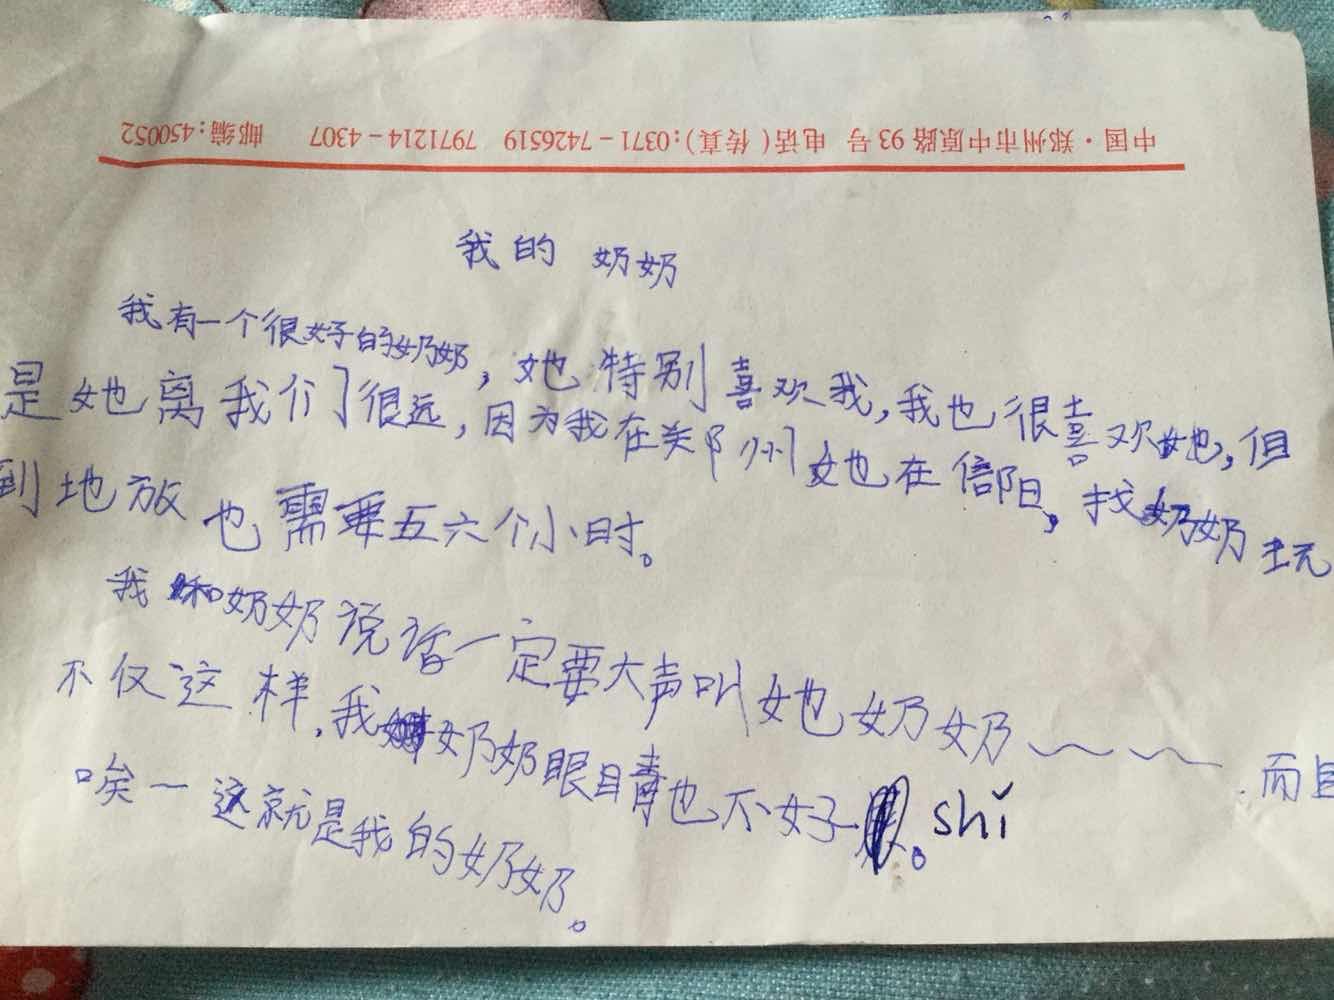 中国·郑州市中原路93号 电话(传真):0371-7426519 7971214-4307 邮编:450052
我的 奶奶
我有一个很好的奶奶，她特别喜欢我，我也很喜欢她，但
是她离我们很远，因为我在郑州她也在信阳，找奶奶玩
到地放也需要五六个小时。
我和奶奶说话一定要大声叫她奶奶～～～ 而且
不仅这样，我奶奶眼睛也不好。shǐ
唉一这就是我的奶奶。